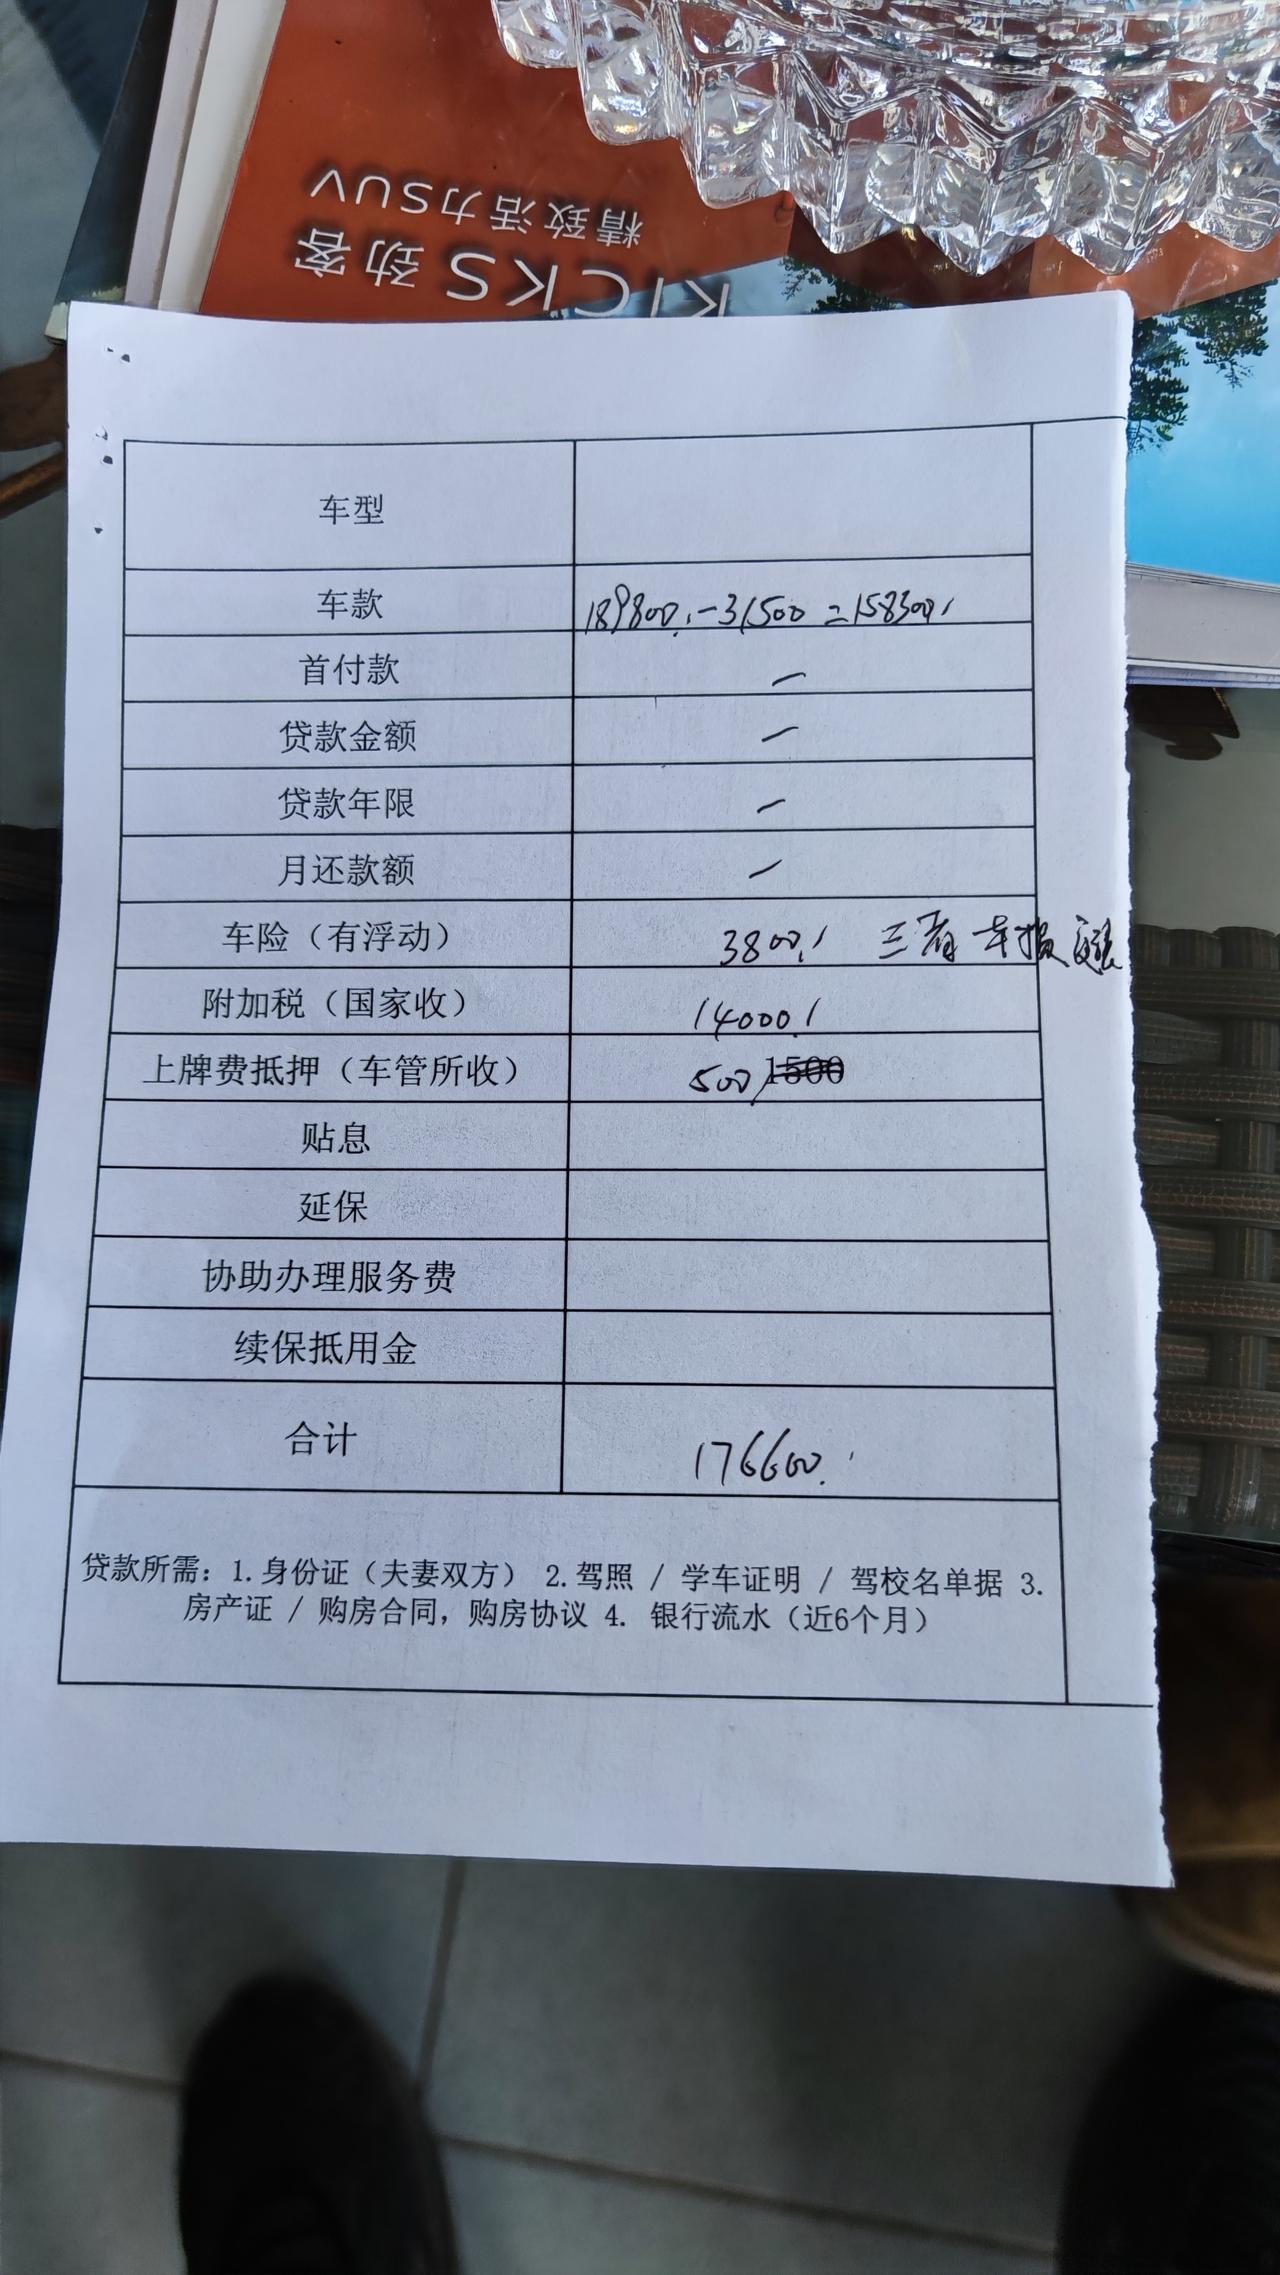 KICKS劲客
精致活力SUV
车型
车款 189800.-31500=158300.
首付款 —
贷款金额 —
贷款年限 —
月还款额 —
车险（有浮动） 3800. 三者 车损
附加税（国家收） 14000.
上牌费抵押（车管所收） 500 1500
贴息
延保
协助办理服务费
续保抵用金
合计 176600.
贷款所需：1.身份证（夫妻双方） 2.驾照 / 学车证明 / 驾校名单据 3.
房产证 / 购房合同，购房协议 4. 银行流水（近6个月）